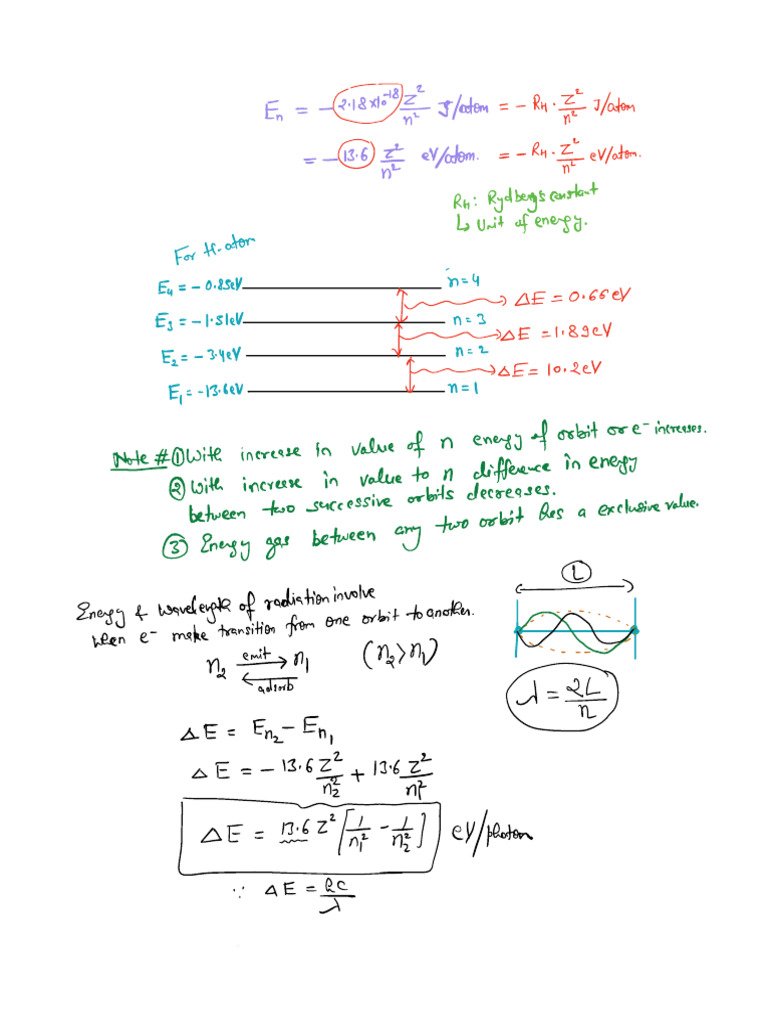 Eₙ = -2.18×10⁻¹⁸ Z²/n² J/atom = - R_H . Z²/n² J/atom
= -13.6 Z²/n² eV/atom. = - R_H . Z²/n² eV/atom.
R_H : Rydberg's constant
↳ Unit of energy.
For H-atom
E₄ = -0.85eV n = 4
ΔE = 0.66eV
E₃ = -1.51eV n = 3
ΔE = 1.89eV
E₂ = -3.4eV n = 2
ΔE = 10.2eV
E₁ = -13.6eV n = 1
Note # ① With increase in value of n energy of orbit or e⁻ increases.
② With increase in value to n difference in energy
between two successive orbits decreases.
③ Energy gas between any two orbit has a exclusive value.
L
Energy & wavelength of radiation involve
when e⁻ make transition from one orbit to another.
n₂ emit n₁ (n₂>n₁)
adsorb
λ = 2L/n
ΔE = E_n₂ - E_n₁
ΔE = -13.6 Z²/n₂² + 13.6 Z²/n₁²
ΔE = 13.6 Z² [1/n₁² - 1/n₂²] eV/photon
∵ ΔE = hc/λ